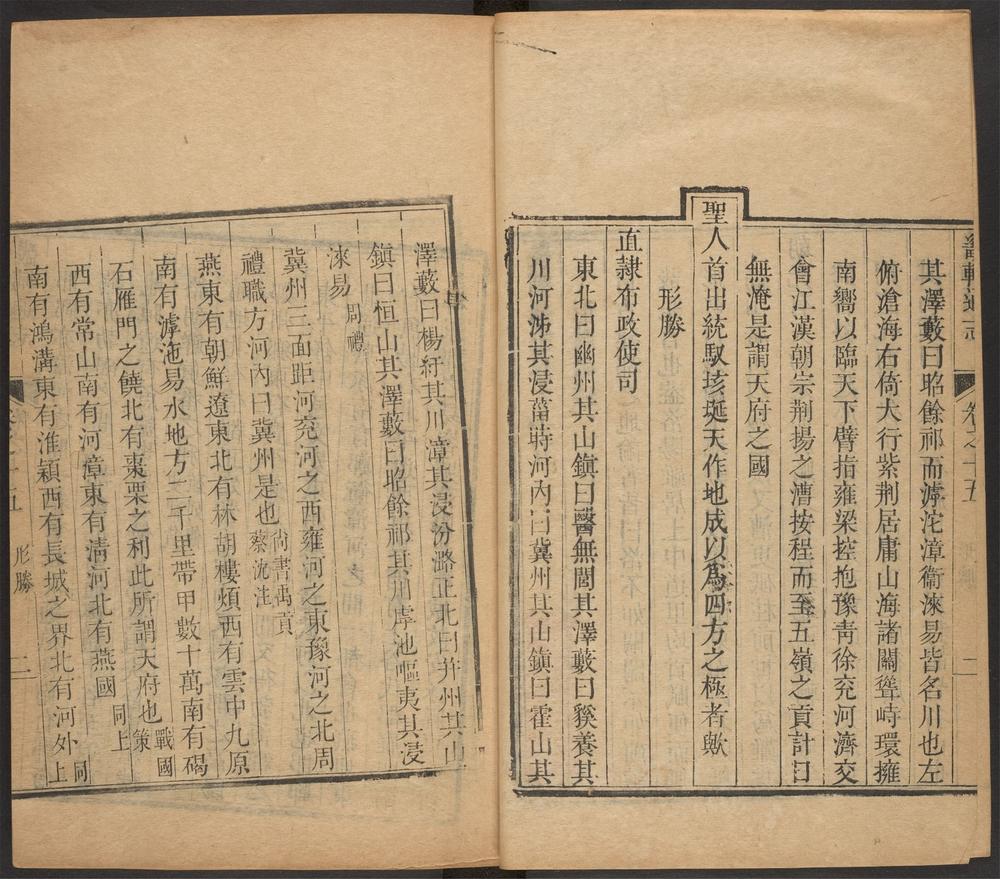 畿輔通志 卷之十五 二
其澤藪曰昭餘祁而滹沱漳衞淶易皆名川也左
俯滄海右倚大行紫荆居庸山海諸關聳峙環擁
南嚮以臨天下臂指雍梁控抱豫靑徐兖河濟交
會江漢朝宗荆揚之漕按程而至五嶺之貢計日
無淹是謂天府之國
聖人首出統馭垓埏天作地成以爲四方之極者歟
形勝
直隷布政使司
東北曰幽州其山鎮曰醫無閭其澤藪曰豯養其
川河泲其浸菑時河內曰冀州其山鎮曰霍山其
澤藪曰楊紆其川漳其浸汾潞正北曰幷州其山
鎮曰恒山其澤藪曰昭餘祁其川虖池嘔夷其浸
淶易 周禮
冀州三面距河兖河之西雍河之東豫河之北周
禮職方河內曰冀州是也 尚書禹貢蔡沈注
燕東有朝鮮遼東北有林胡樓煩西有雲中九原
南有滹沲易水地方二千里帶甲數十萬南有碣
石雁門之饒北有棗栗之利此所謂天府也 戰國策
西有常山南有河漳東有淸河北有燕國 同上
南有鴻溝東有淮潁西有長城之界北有河外 同上
卷之十五 形勝 二